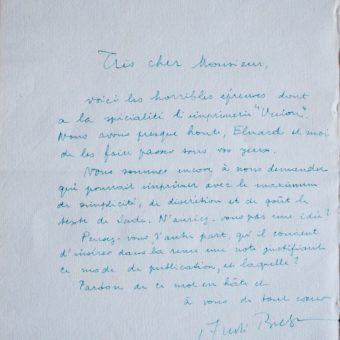 Très cher Monsieur,
voici les horribles épreuves dont
a la spécialité l'imprimerie "Union".
Nous avons presque honte, Eluard et moi
de les faire passer sous vos yeux.
Nous sommes encore à nous demander
qui pourrait imprimer avec le maximum
de simplicité, de discrétion et de goût le
texte de Sade. N'auriez-vous pas une idée?
Pensez-vous, d'autre part, qu'il convient
d'insérer dans la revue une note justifiant
ce mode de publication, et laquelle?
Pardon de ce mot en hâte et
à vous de tout cœur
André Breton